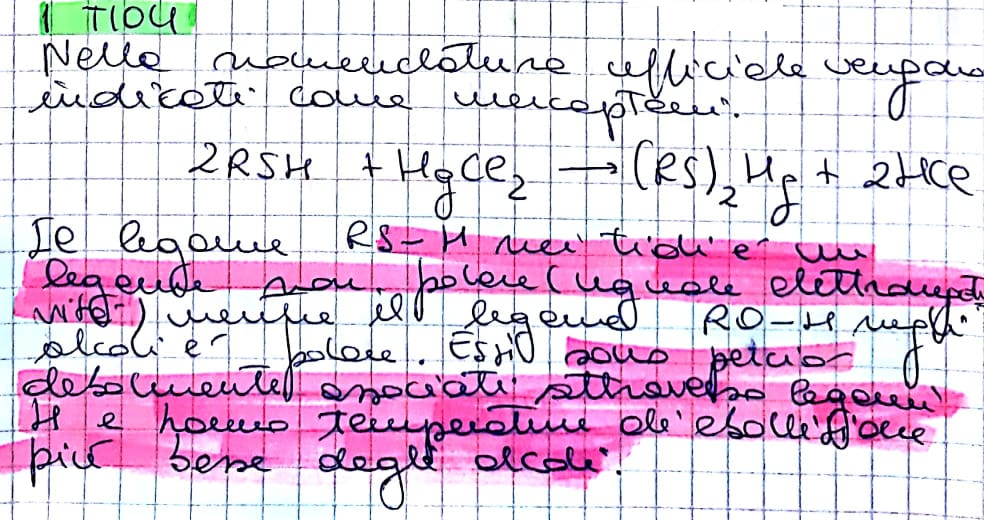 I TIOLI
Nella nomenclatura ufficiale vengono
indicati come mercaptani.
2RSH + HgCl₂ → (RS)₂Hg + 2HCl
Il legame RS-H nei tioli è un
legame non polare (uguale elettronegati
vità) mentre il legame RO-H negli
alcoli è polare. Essi sono perciò
debolmente associati attraverso legami
H e hanno temperature di ebollizione
più basse degli alcoli.